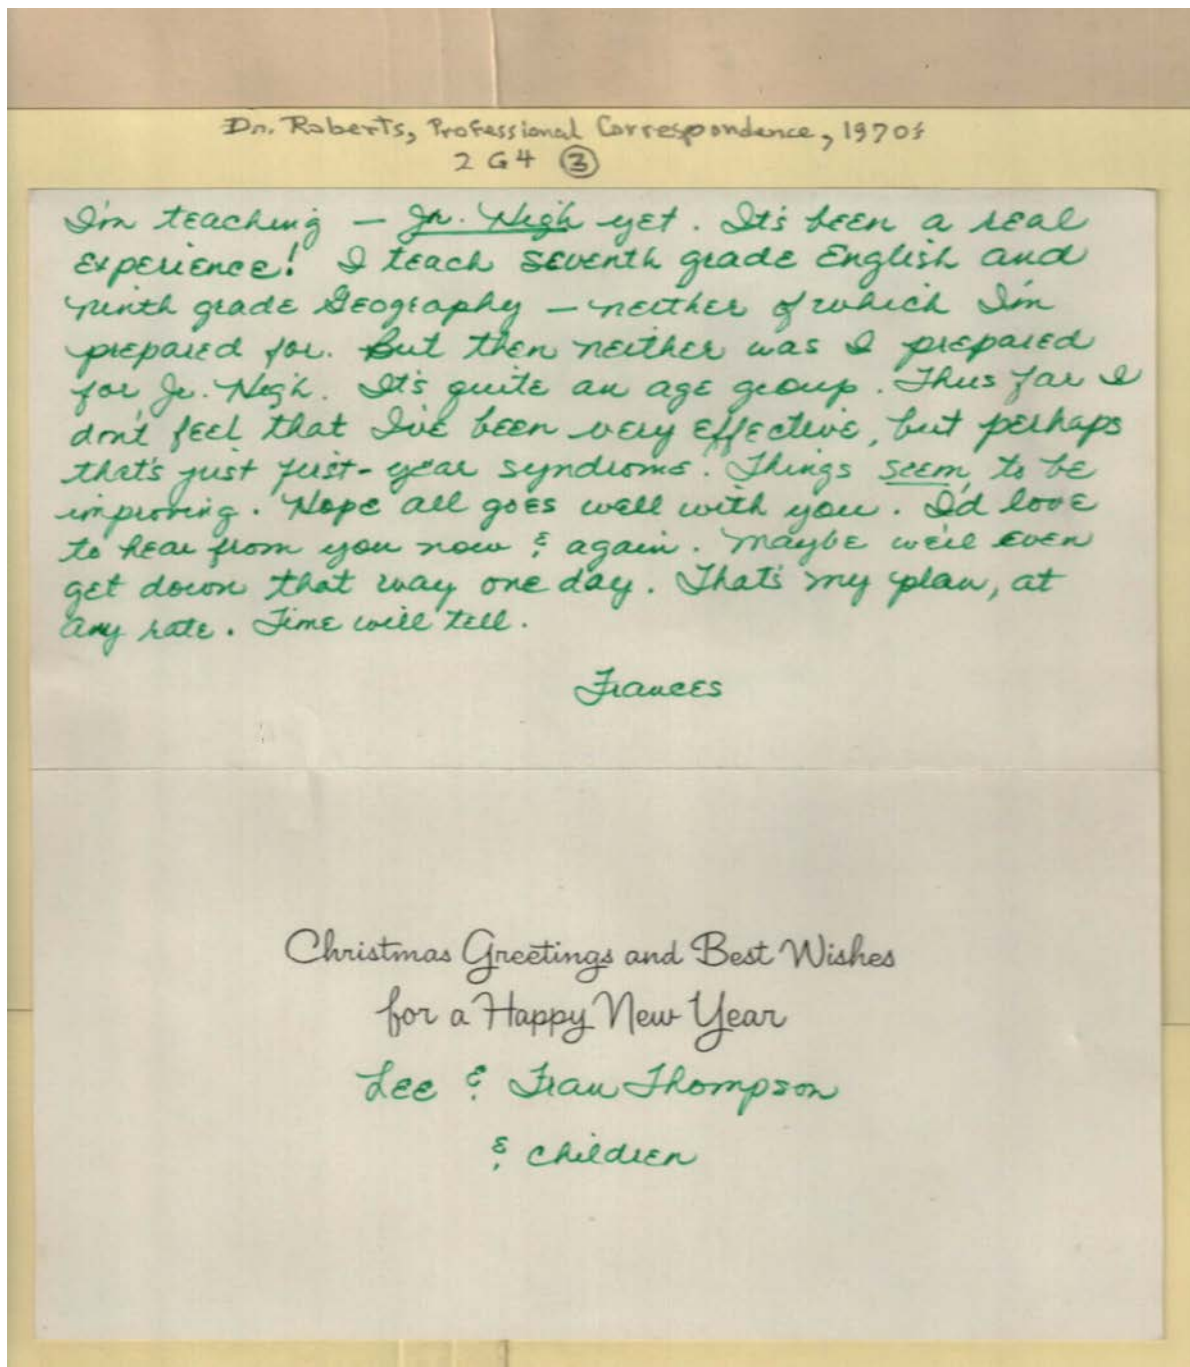 Dr. Roberts, Professional Correspondence, 1970s
2 G4 3
I'm teaching – Jr. High yet. It's been a real
experience! I teach seventh grade English and
ninth grade Geography – neither of which I'm
prepared for. But then neither was I prepared
for Jr. High. It's quite an age group. Thus far I
don't feel that I've been very effective, but perhaps
that's just first-year syndrome. Things seem to be
improving. Hope all goes well with you. I'd love
to hear from you now & again. Maybe we'll even
get down that way one day. That's my plan, at
any rate. Time will tell.
Frances
Christmas Greetings and Best Wishes
for a Happy New Year
Lee & Fran Thompson
& children